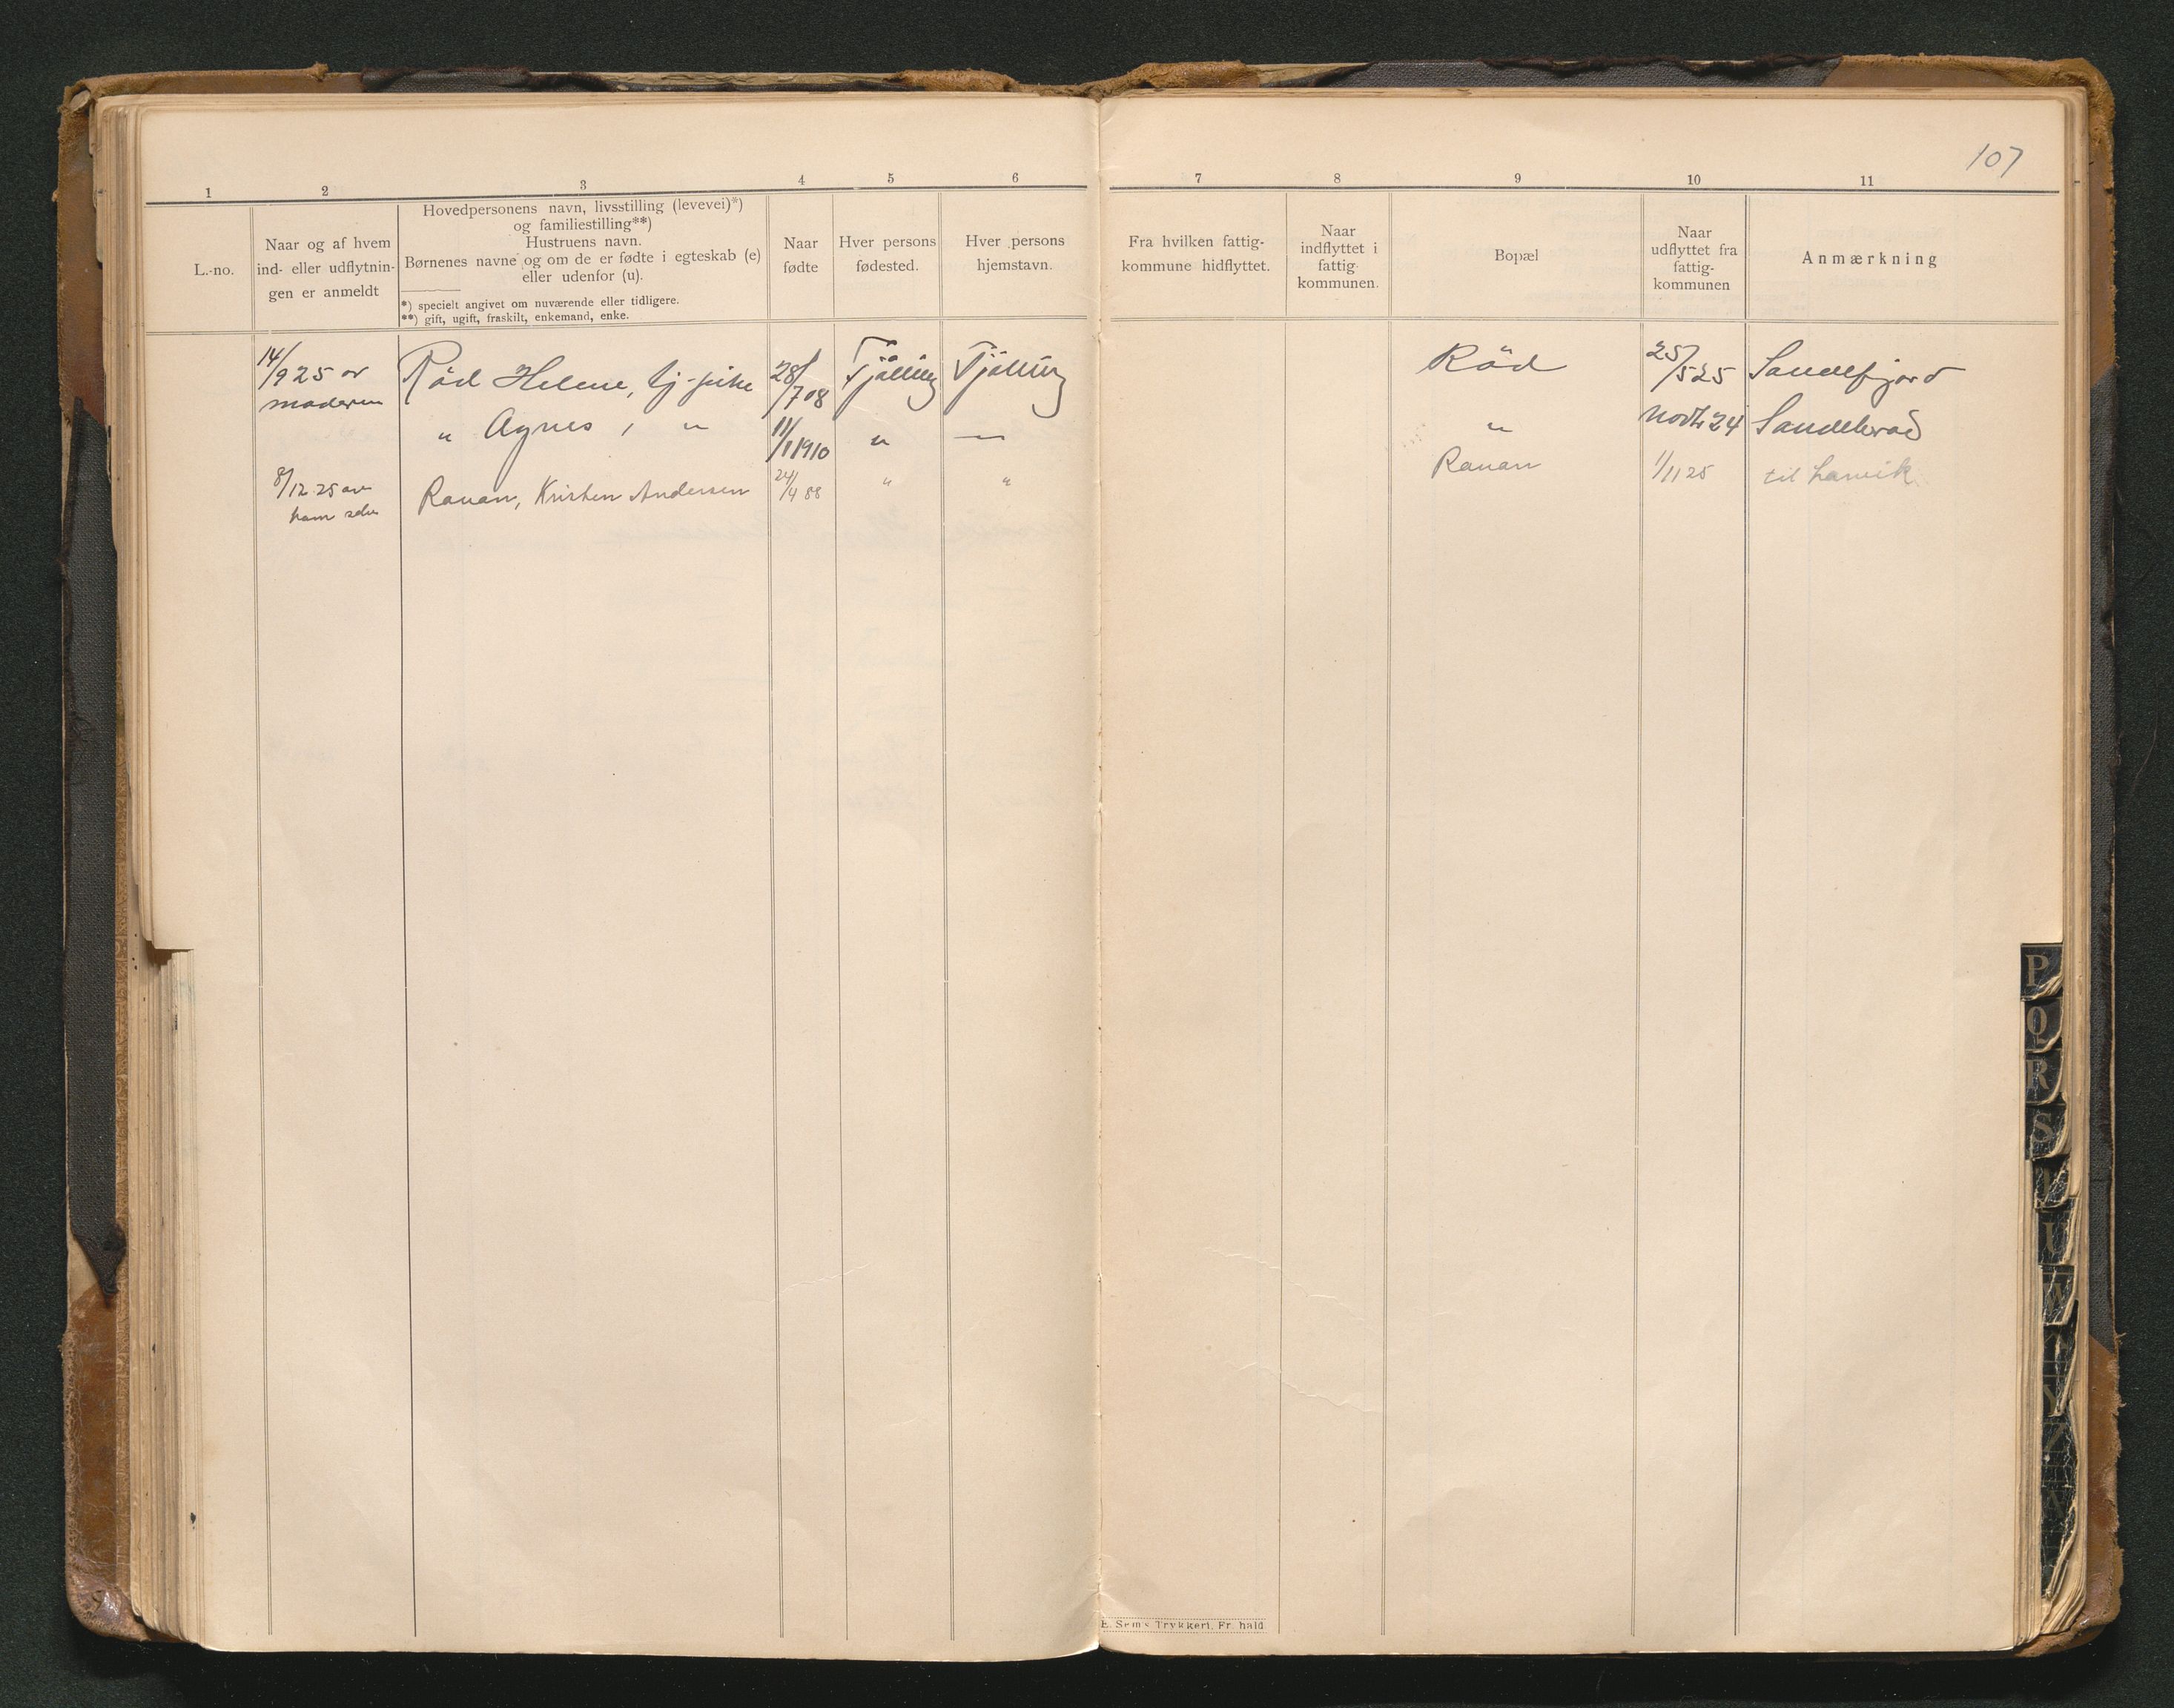 107
1 2 3 4 5 6 7 8 9 10 11
L.-no.
Naar og af hvem
ind- eller udflytnin-
gen er anmeldt
Hovedpersonens navn, livsstilling (levevei)*)
og familiestilling**)
Hustruens navn.
Børnenes navne og om de er fødte i egteskab (e)
eller udenfor (u).
*) specielt angivet om nuværende eller tidligere.
**) gift, ugift, fraskilt, enkemand, enke.
Naar
fødte
Hver persons
fødested.
Hver persons
hjemstavn.
Fra hvilken fattig-
kommune hidflyttet.
Naar
indflyttet i
fattig-
kommunen.
Bopæl
Naar
udflyttet fra
fattig-
kommunen
Anmærkning
14/9 25 av
moderen
Röd Helene, tj-pike 28/7 08 Tjölling Tjölling Röd 25/5 25 Sandefjord
" Agnes, " 11/1 1910 " — " novbr 24 Sandeherad
8/12 25 av
ham selv
Rauan, Kristen Andersen 24/4 88 " " Rauan 1/11 25 til Larvik
E. Sem's Trykkeri, Fr. hald
P
Q
R
S
U
W
Y
Z